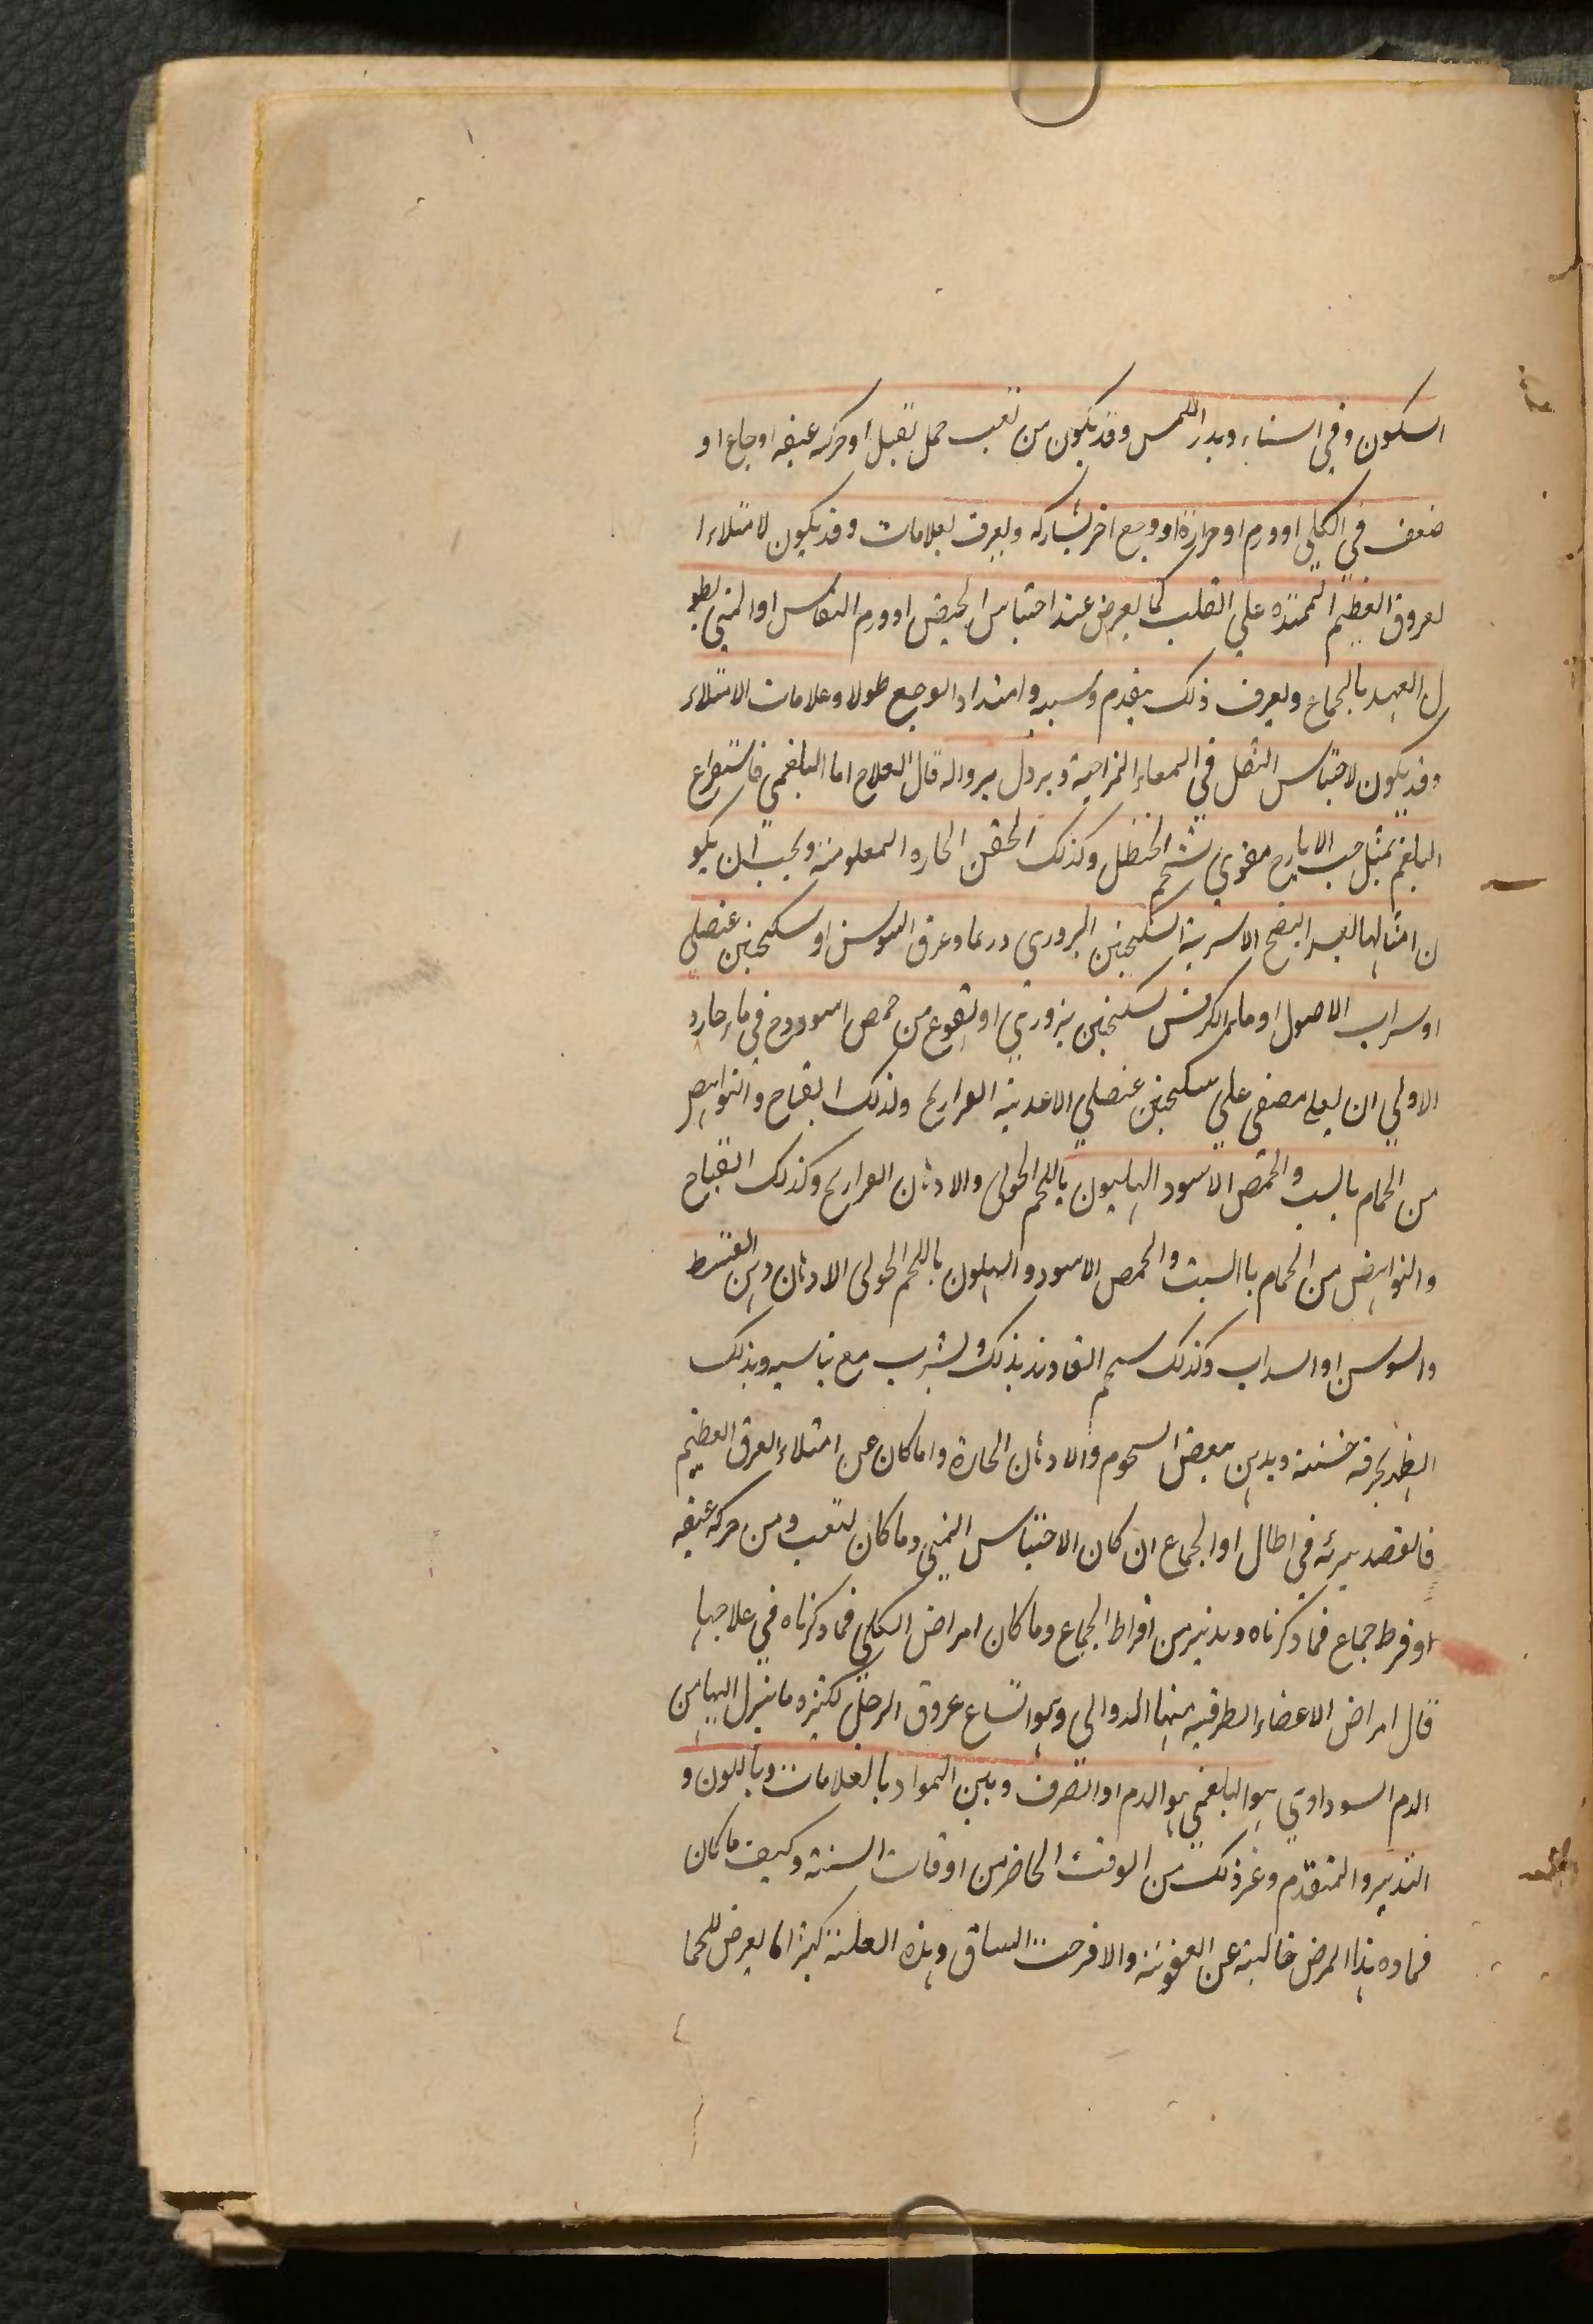 السكون وفي الشتاء وبدر اللمس وقد يكون من تعب حمل ثقيل او حركه عنيفه او جماع او
ضعف في الكلي او ورم او حرارة او وجع اخر يشاركه ويعرف بعلامات وقد يكون لامتلاء ا
لعروق العظيم الممتده علي القلب كما يعرض عند احتباس الحيض او ورم النفاس او المني لطو
ل العهد بالجماع ويعرف ذلك بتقدم وسببه وامتداد الوجع طولا وعلامات الامتلاء
وقد يكون لاحتباس الثفل في المعاء المزاحمة ويزول بزواله قال العلاج اما البلغمي فاستفراع
البلغم بمثل حب الايارج مقوي بشحم الحنظل وكذلك الحقن الحاره المعلومة ويجب ان يكو
ن امثالها بعد النضج الاشربة السكنجبين البزوري وربما وعرق السوسن او سكنجبين عنصلي
او شراب الاصول او ماء الكرفس سكنجبين بزوري او نقوع من حمص اسود في ماء حار و
الاولي ان يغلي مصفي علي سكنجبين عنصلي الاغذية الفراريج وكذلك القباج والنواهض
من الحمام بالشبت والحمص الاسود الهليون باللحم الحولي والادهان الفراريج وكذلك القباج
والنواهض من الحمام باالشبت والحمص الاسود والهليون باللحم الحولي الادهان دهن القسط
والسوسن او السداب وكذلك شحم يدلك ويشرب مع وبذلك
الظهر بخرقه خشنة ويدهن ببعض الشحوم والادهان الحارة واما كان عن امتلاء العرق العظيم
فالفصد يبرئه في اطال او الجماع ان كان الاحتباس المني وما كان لتعب ومن حركه عنيفه
او فرط جماع فما ذكرناه وتدبير من افراط الجماع وما كان امراض الكلي فما ذكرناه في علاجها
قال امراض الاعضاء الطرفيه منها الدوالي وهو اتساع عروق الرجل لكثره ما ينزل اليها من
الدم السوداوي هو البلغمي هو الدم او الصرف وبين المواد بالعلامات وباللون و
التدبير والمتقدم وغر ذلك من الوقت الحاضر من اوقات السنة وكيف ما كان
فماده هذا المرض خالية عن العفونة والا قرحت الساق وهذه العلة كثيرا ما يعرض للحما